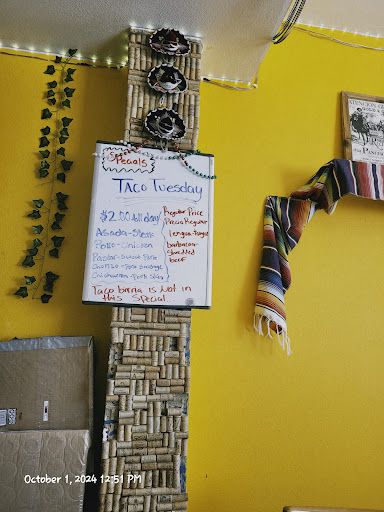 Specials
Taco Tuesday
$2.00 all day
Asada-Steak
Pollo-Chicken
Pastor-Sweet Pork
Chorizo-Pork Sausage
Regular Price
Precio Regular
Lengua-Tongue
barbacoa-
Shredded
beef
Taco birria is Not in
this Special
October 1, 2024 12:51 PM